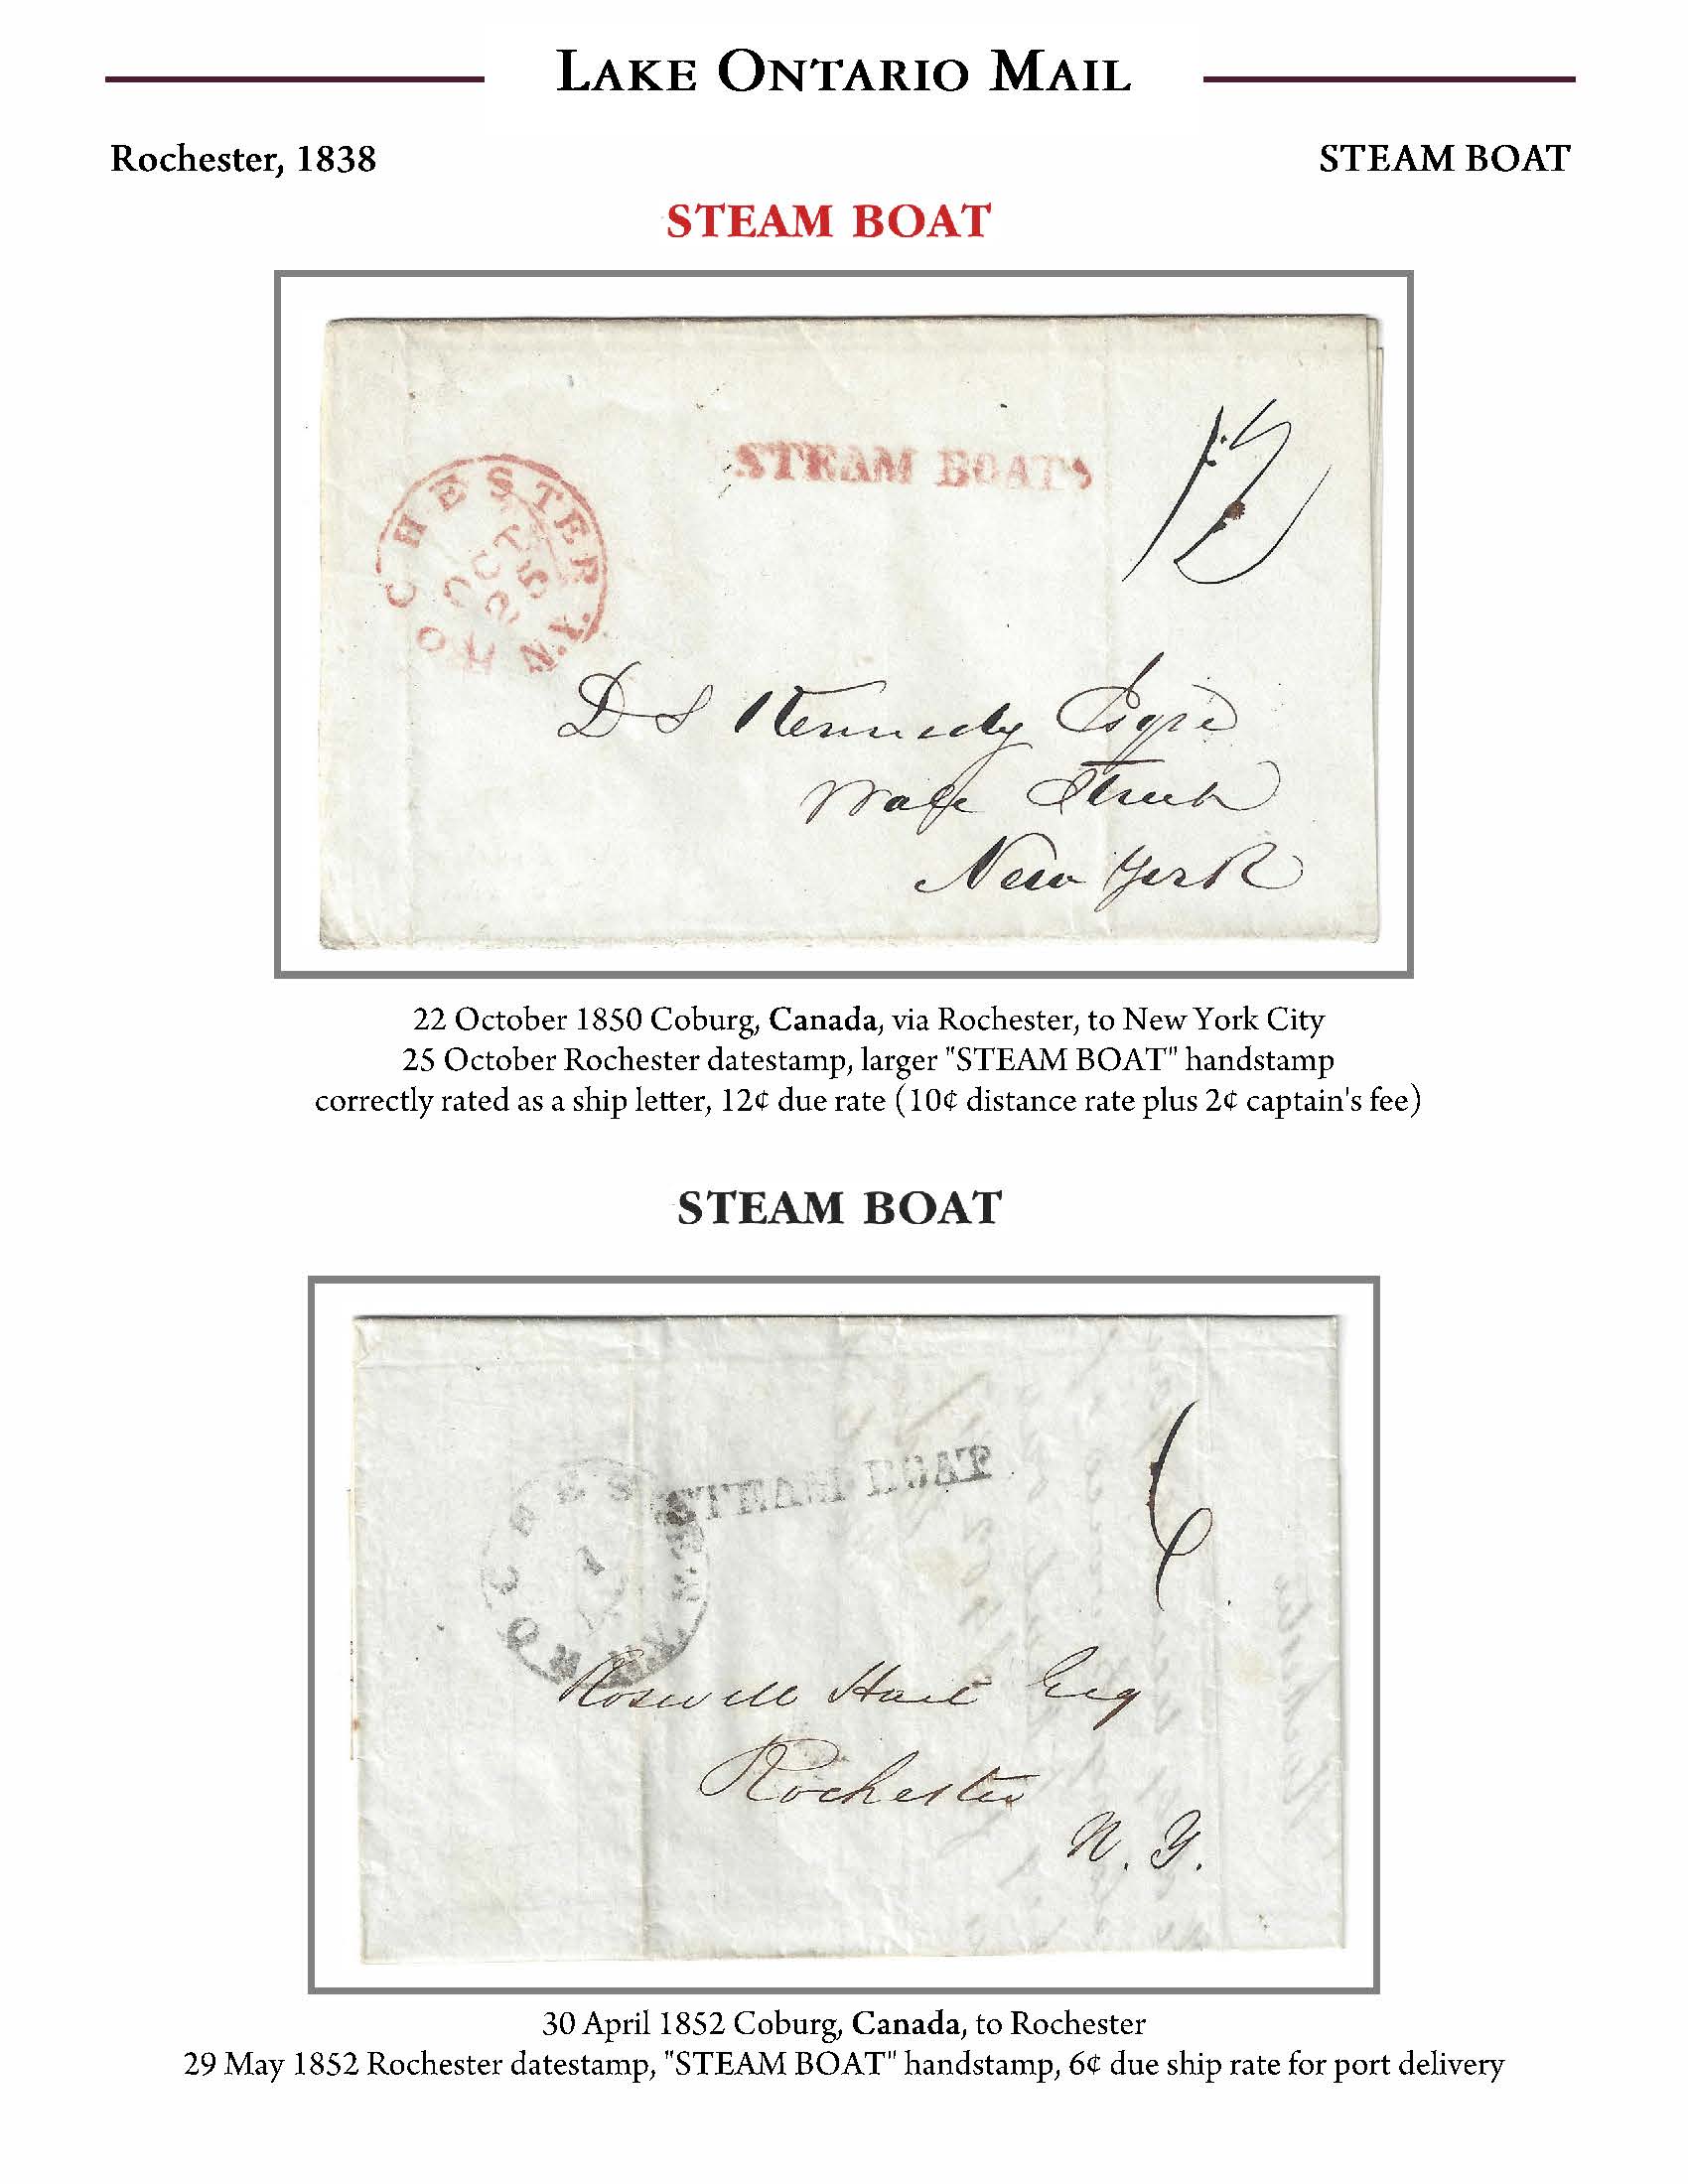 LAKE ONTARIO MAIL
Rochester, 1838
STEAM BOAT
STEAM BOAT
STEAM BOAT
12
ROCHESTER N.Y.
OCT
25
D S Kennedy Esqre
Wall Street
New York
22 October 1850 Coburg, Canada, via Rochester, to New York City
25 October Rochester datestamp, larger "STEAM BOAT" handstamp
correctly rated as a ship letter, 12¢ due rate (10¢ distance rate plus 2¢ captain's fee)
STEAM BOAT
STEAM BOAT
6
Roswell Hait Esq
Rochester
N. Y.
30 April 1852 Coburg, Canada, to Rochester
29 May 1852 Rochester datestamp, "STEAM BOAT" handstamp, 6¢ due ship rate for port delivery